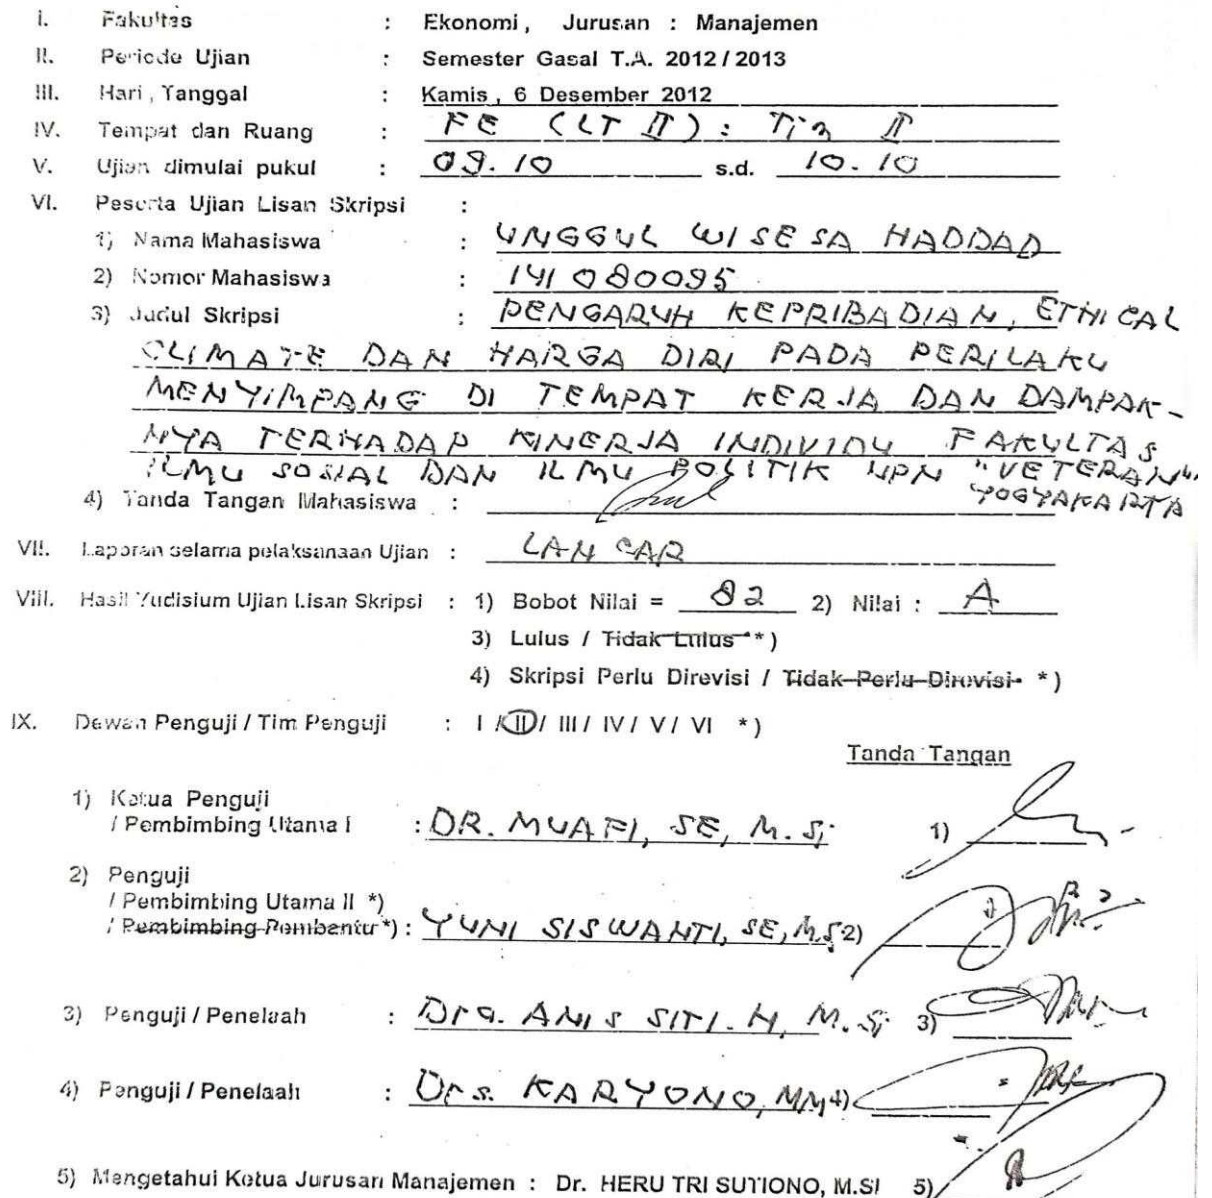 I. Fakultas : Ekonomi, Jurusan : Manajemen
II. Periode Ujian : Semester Gasal T.A. 2012 / 2013
III. Hari, Tanggal : Kamis, 6 Desember 2012
IV. Tempat dan Ruang : FE (LT II) : Tim II
V. Ujian dimulai pukul : 09.10 s.d. 10.10
VI. Peserta Ujian Lisan Skripsi :
1) Nama Mahasiswa : UNGGUL WISESA HADDAD
2) Nomor Mahasiswa : 141080095
3) Judul Skripsi : PENGARUH KEPRIBADIAN, ETHICAL
CLIMATE DAN HARGA DIRI PADA PERILAKU
MENYIMPANG DI TEMPAT KERJA DAN DAMPAK-
NYA TERHADAP KINERJA INDIVIDU FAKULTAS
ILMU SOSIAL DAN ILMU POLITIK UPN "VETERAN"
YOGYAKARTA
4) Tanda Tangan Mahasiswa :
VII. Laporan selama pelaksanaan Ujian : LANCAR
VIII. Hasil Yudisium Ujian Lisan Skripsi : 1) Bobot Nilai = 82 2) Nilai : A
3) Lulus / Tidak Lulus *)
4) Skripsi Perlu Direvisi / Tidak Perlu Direvisi *)
IX. Dewan Penguji / Tim Penguji : I / II / III / IV / V / VI *)
Tanda Tangan
1) Ketua Penguji
/ Pembimbing Utama I : DR. MUAFI, SE, M.Si 1)
2) Penguji
/ Pembimbing Utama II *)
/ Pembimbing Pembantu *) : YUNI SISWANTI, SE, M.Si 2)
3) Penguji / Penelaah : Dra. ANIS SITI. H, M.Si 3)
4) Penguji / Penelaah : Drs. KARYONO, MM 4)
5) Mengetahui Ketua Jurusan Manajemen : Dr. HERU TRI SUTIONO, M.SI 5)